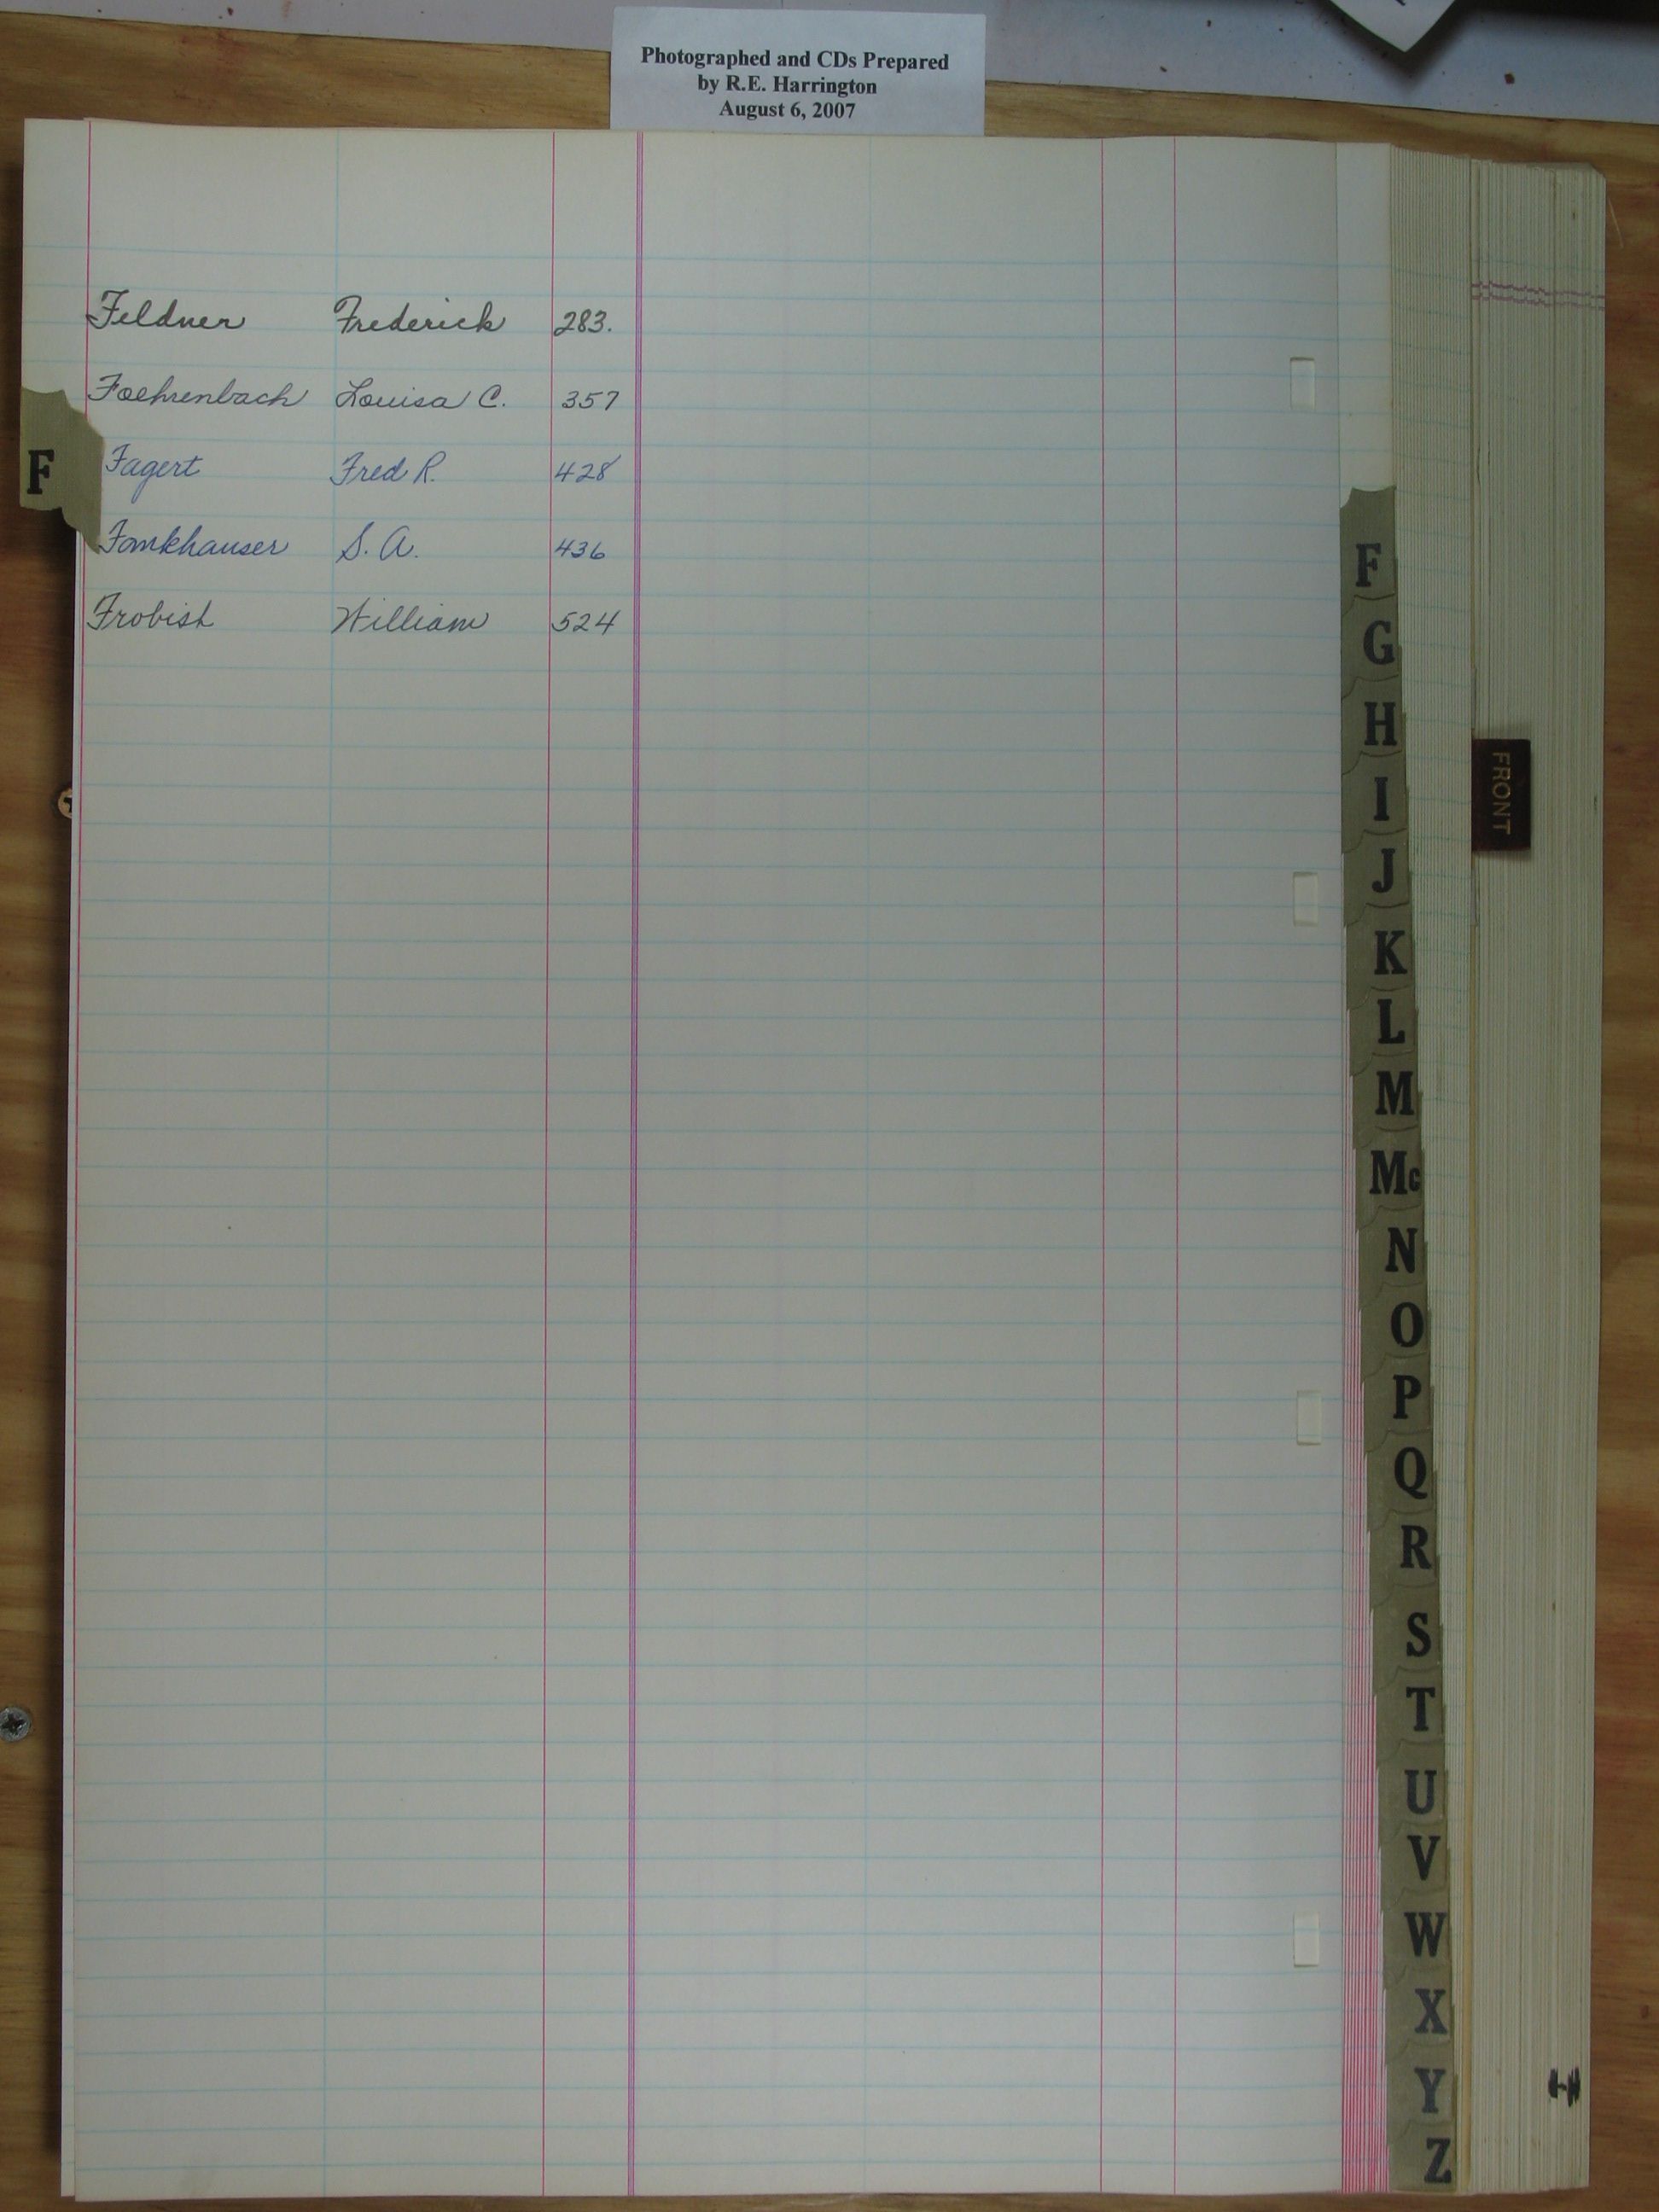 Photographed and CDs Prepared
by R.E. Harrington
August 6, 2007
Feldner Frederick 283.
Foehrenbach Louisa C. 357
Fagert Fred R. 428
Fomkhauser S. A. 436
Frobish William 524
F
F
G
H
I
J
K
L
M
Mc
N
O
P
Q
R
S
T
U
V
W
X
Y
Z
FRONT